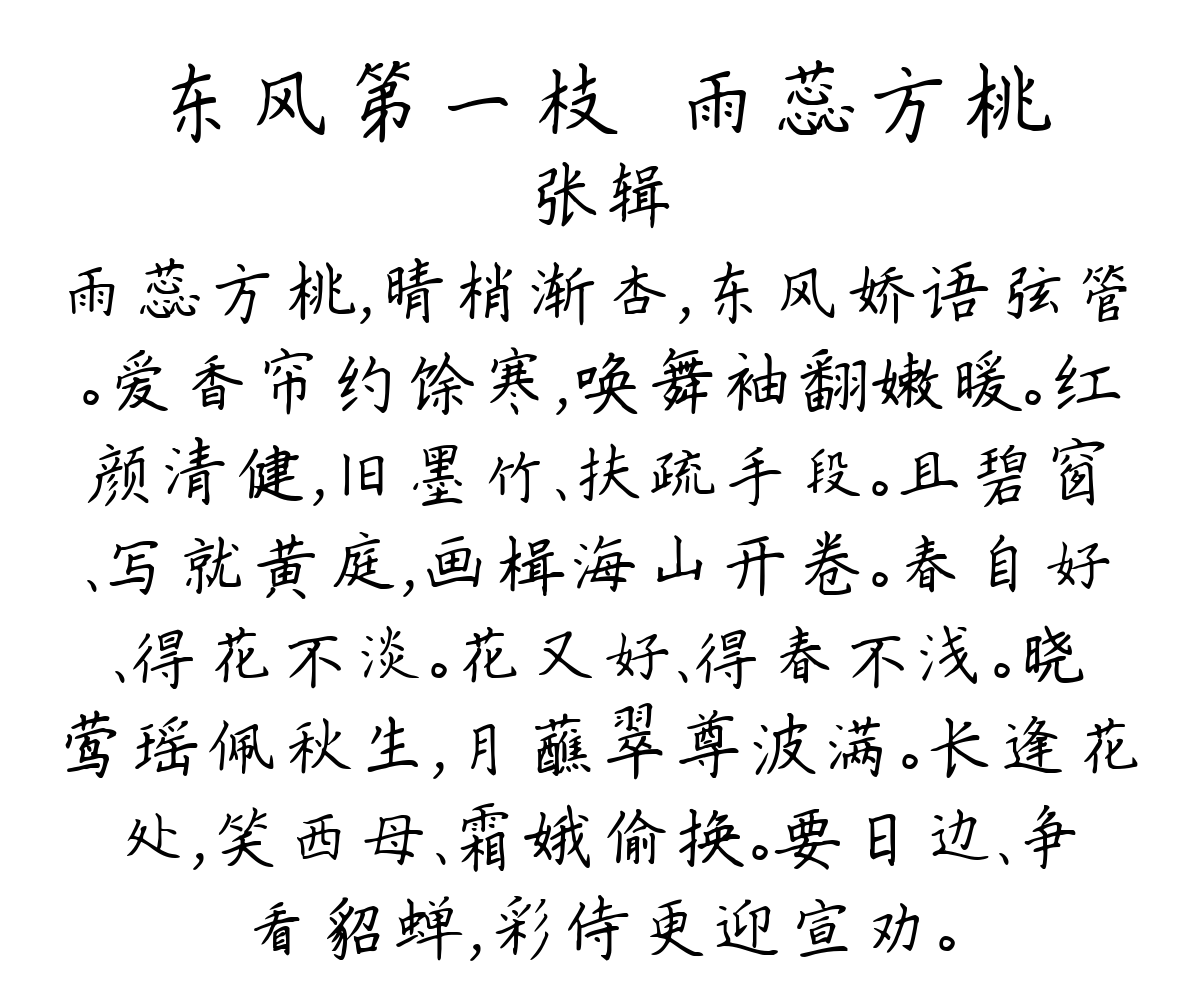 东风第一枝 雨蕊方桃
张辑
雨蕊方桃,晴梢渐杏,东风娇语弦管
。爱香帘约馀寒,唤舞袖翻嫩暖。红
颜清健,旧墨竹、扶疏手段。且碧窗
、写就黄庭,画楫海山开卷。春自好
、得花不淡。花又好、得春不浅。晓
莺瑶佩秋生,月蘸翠尊波满。长逢花
处,笑西母、霜娥偷换。要日边、争
看貂蝉,彩侍更迎宣劝。